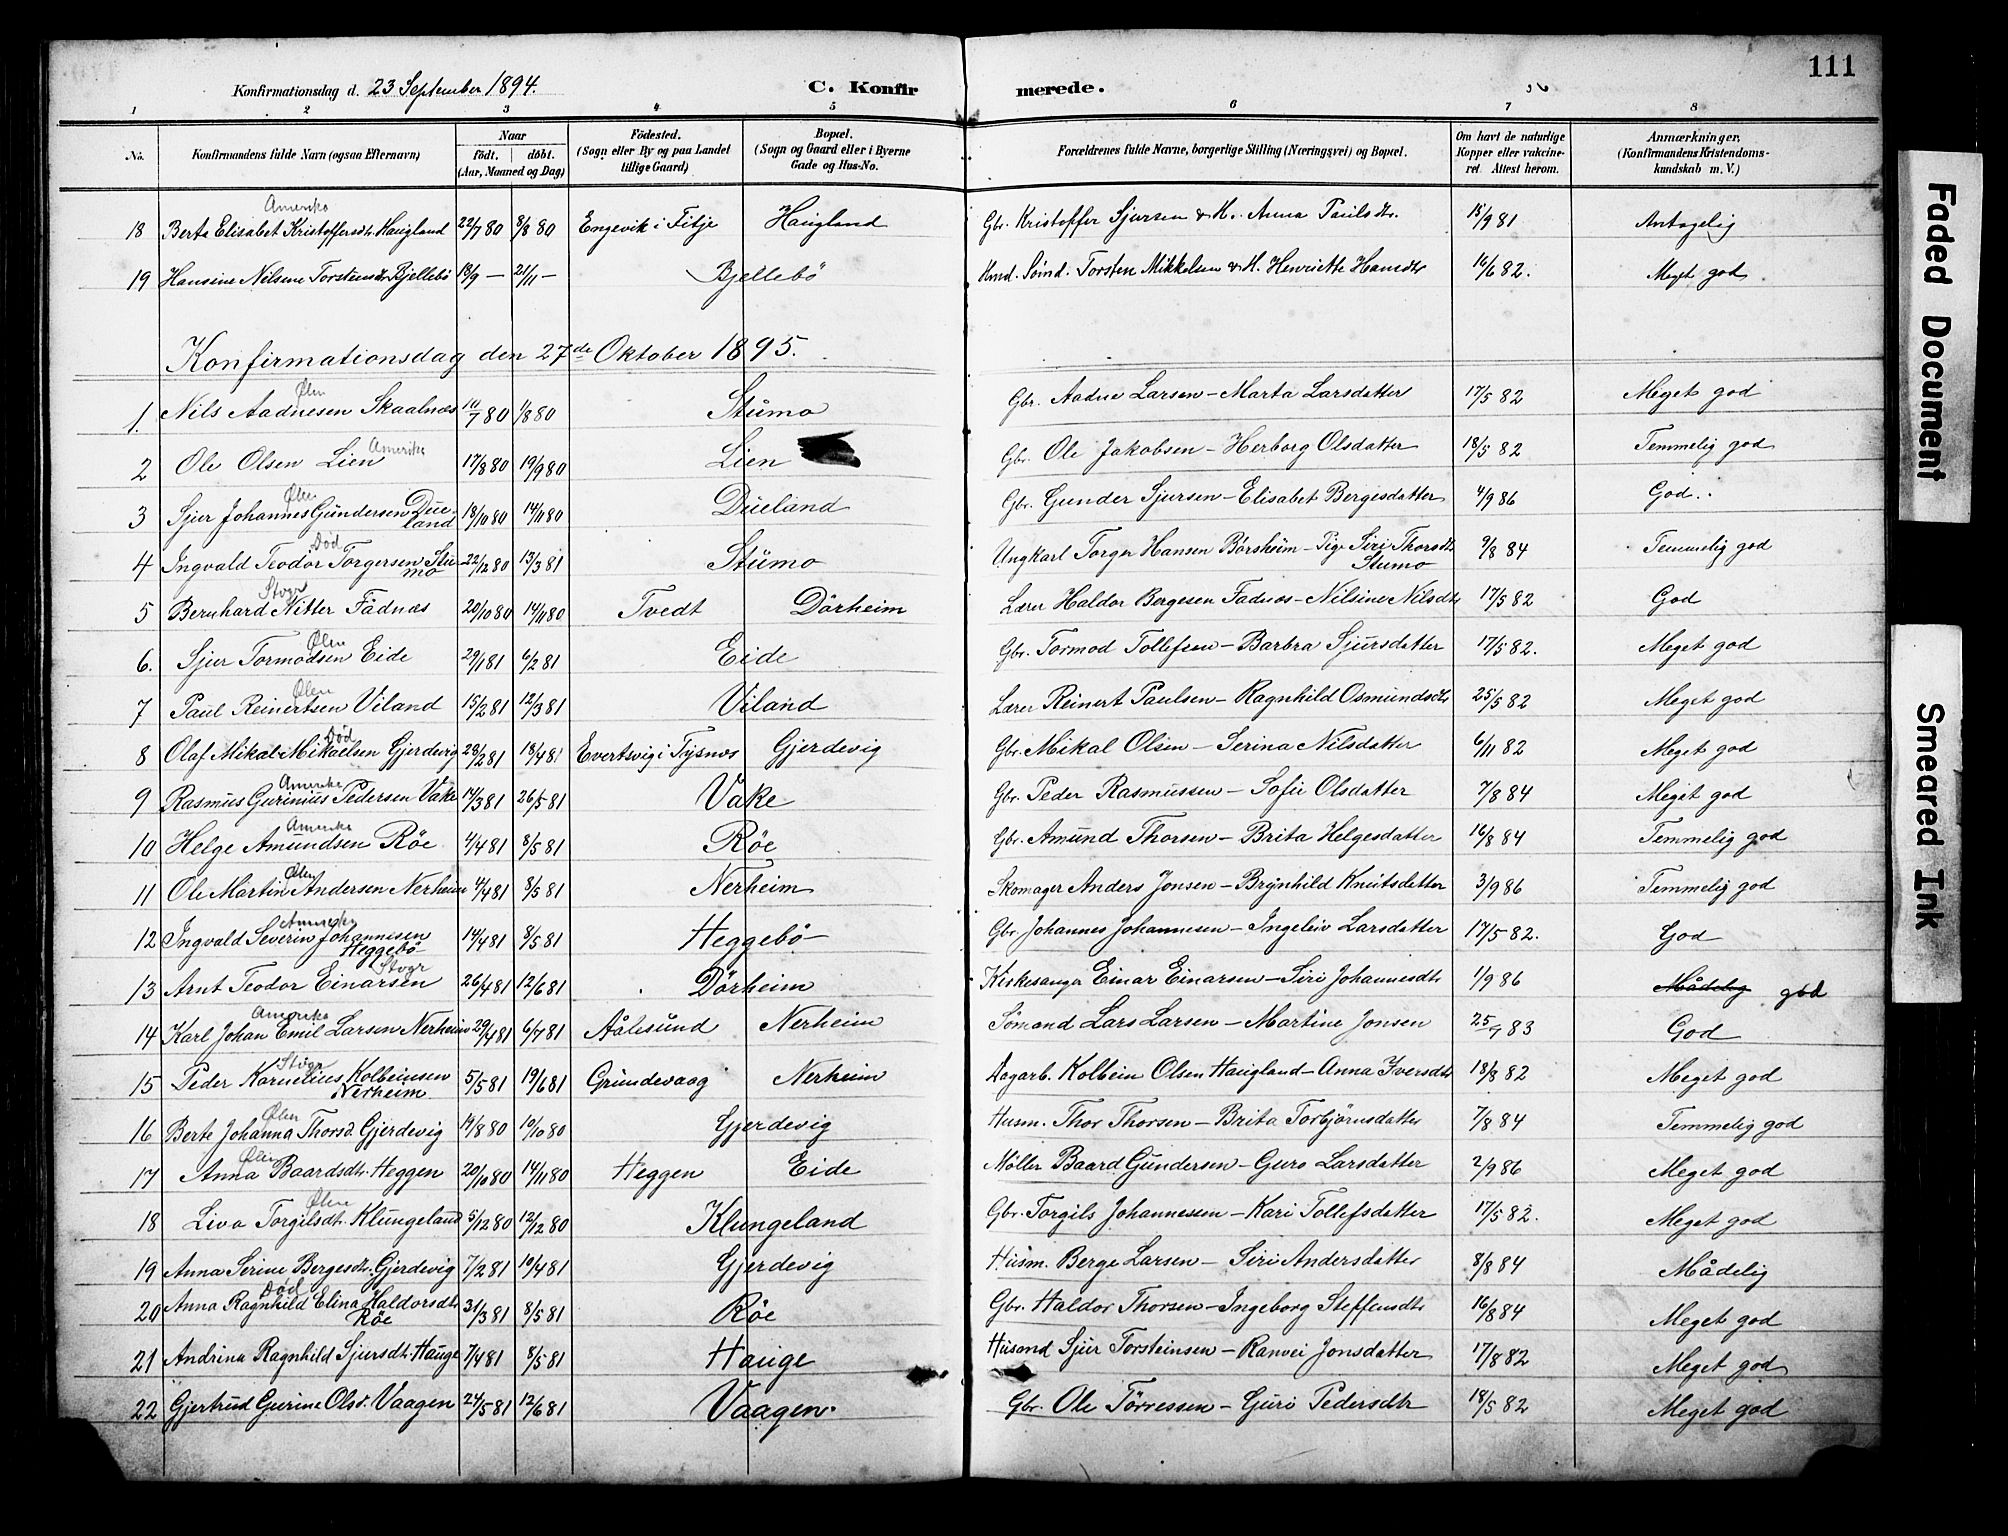 111
Konfirmationsdag d. 23 September 1894. C. Konfir merede.
1 2 3 4 5 6 7 8
No. Konfirmandens fulde Navn (ogsaa Efternavn) Naar født. døbt. (Aar, Maaned og Dag) Fødested. (Sogn eller By og paa Landet tillige Gaard) Bopæl. (Sogn og Gaard eller i Byerne Gade og Hus-No. Forældrenes fulde Navne, borgerlige Stilling (Næringsvei) og Bopæl. Om havt de naturlige Kopper eller vakcineret. Attest herom. Anmærkninger, (Konfirmandens Kristendomskundskab m. V.)
Amerika
18 Berta Elisabet Kristoffersdtr Haugland 22/7 80 8/8 80 Engevik i Fitje Haugland Gbr. Kristoffer Sjursen & H. Anna Paulsdtr. 15/9 81 Antagelig
19 Hansine Nilsine Torstensdtr Bjellebö 13/9 — 21/11 — Bjellebö Hmd. Sömd. Torsten Mikkelsen & H. Henriette Hansdtr 16/6 82. Meget god
Konfirmationsdag den 27de Oktober 1895.
Ølen
1. Nils Aadnesen Skaalnæs 10/7 80 1/8 80 Stumo Gbr. Aadne Larsen - Marta Larsdatter 17/5 82 Meget god
2 Ole Olsen Lien Amerika 17/8 80 19/9 80 Lien Gbr. Ole Jakobsen - Herborg Olsdatter 18/5 82 Temmelig god
Ølen
3 Sjur Johannes Gundersen Dueland 18/10 80 14/11 80 Dueland Gbr. Gunder Sjursen - Elisabet Bergesdatter 4/9 86 God.
Død
4 Ingvald Teodor Torgersen Stumo 22/12 80 13/3 81 Stumo Ungkarl Torger Hansen Börsheim - Pige Siri Thorsdtr Stumo 9/8 84 Temmelig god
Stogr
5 Bernhard Nitter Fadnæs 20/10 80 14/11 80 Tvedt Dörheim Lærer Haldor Bergesen Fadnæs - Nilsine Nilsdtr 17/5 82 God
Ølen
6. Sjur Tormodsen Eide 29/1 81 6/2 81 Eide Gbr. Tormod Tollefsen - Barbra Sjursdatter 17/5 82. Meget god
Ølen
7 Paul Reinertsen Viland 15/2 81 12/3 81 Viland Lærer Reinert Paulsen - Ragnhild Osmundsdtr 25/5 82 Meget god
Død
8 Olaf Mikal Mikaelsen Gjerdevig 28/2 81 18/4 81 Evertsvig i Tysnæs Gjerdevig Gbr. Mikal Olsen - Serina Nilsdatter 6/11 82 Meget god
Amerika
9 Rasmus Gurinius Pedersen Vake 14/3 81 26/5 81 Vake Gbr. Peder Rasmussen - Sofie Olsdatter 7/8 84 Meget god
Amerika
10 Helge Amundsen Röe 4/4 81 8/5 81 Röe Gbr. Amund Thorsen - Brita Helgesdatter 16/8 84 Temmelig god
Ølen
11 Ole Martin Andersen Nerheim 4/4 81 8/5 81 Nerheim Skomager Anders Jonsen - Brynhild Knutsdatter 3/9 86 Temmelig god
Amerika
12 Ingvald Severin Johannesen Heggebö 14/4 81 8/5 81 Heggebö Gbr. Johannes Johannesen - Ingeleiv Larsdatter 17/5 82. God
Stogr
13 Arnt Teodor Einarsen 26/4 81 12/6 81 Dörheim Kirkesanger Einar Einarsen - Siri Johannesdtr 1/9 86 Mådelig god
Amerika
14 Karl Johan Emil Larsen Nerheim 29/4 81 6/7 81 Aålesund Nerheim Sömand Lars Larsen - Martine Jonsen 25/9 83 God
Stogr
15 Peder Kornelius Kolbeinsen Nerheim 5/5 81 19/6 81 Grundevaag Nerheim Dagarb. Kolbein Olsen Haugland - Anna Iversdtr 18/8 82 Meget god
Ølen
16 Berte Johanna Thorsd. Gjerdevig 14/8 80 10/10 80 Gjerdevig Husm. Thor Thorsen - Brita Torbjörnsdatter 7/8 84 Temmelig god
Ølen
17 Anna Baardsdtr. Heggen 20/10 80 14/11 80 Heggen Eide Möller Baard Gundersen - Guro Larsdatter 2/9 86 Meget god
Ølen
18 Liva Torgilsdtr. Klungeland 5/12 80 12/12 80 Klungeland Gbr. Torgils Johannesen - Kari Tollefsdatter 17/5 82. Meget god
19 Anna Serine Bergesdtr. Gjerdevig 7/2 81 10/4 81 Gjerdevig Husm. Berge Larsen - Siri Andersdatter 8/8 84 Mådelig
Død
20 Anna Ragnhild Elina Haldorsdtr Röe 31/3 81 8/5 81 Röe Gbr. Haldor Thorsen - Ingeborg Steffensdtr 16/8 84 Meget god
21 Andrina Ragnhild Sjursdtr. Hauge 7/4 81 8/5 81 Hauge Husmd Sjur Torsteinsen - Ranvei Jonsdatter 17/8 82 Meget god
22 Gjertrud Gurine Olsd. Vaagen 24/5 81 12/6 81 Vaagen. Gbr. Ole Törressen - Guro Pedersdtr 18/5 82 Meget god
Faded Document
Smeared Ink